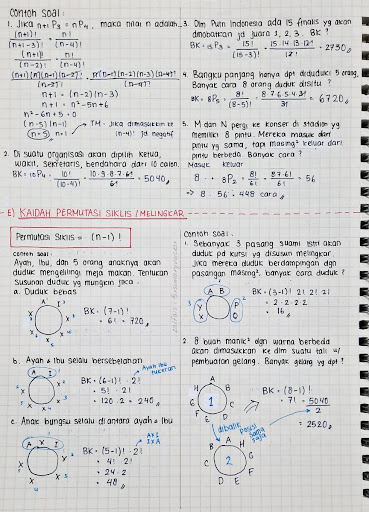 Contoh Soal :
1. Jika n+1 P3 = nP4, maka nilai n adalah..
(n+1)! / (n+1-3)! = n! / (n-4)!
(n+1)! / (n-2)! = n! / (n-4)!
(n+1)(n)(n-1)(n-2)! / (n-2)! = n(n-1)(n-2)(n-3)(n-4)! / (n-4)!
n+1 = (n-2)(n-3)
n+1 = n²-5n+6
n²-6n+5 = 0
(n-5)(n-1) → TM. Jika dimasukkan ke
(n=5) n=1 (n-4)! jd negatif
2. Di suatu organisasi akan dipilih ketua,
wakil, sekretaris, bendahara dari 10 calon.
BK = 10P4 = 10! / (10-4)! = 10·9·8·7·6! / 6! = 5040
3. Dlm Putri Indonesia ada 15 finalis yg akan
dinobatkan jd juara 1, 2, 3. BK ?
BK = 15P3 = 15! / (15-3)! = 15·14·13·12! / 12! = 2730
4. Bangku panjang hanya dpt diduduki 5 orang.
Banyak cara 8 orang duduk disitu ?
BK = 8P5 = 8! / (8-5)! = 8·7·6·5·4·3! / 3! = 6720
5. M dan N pergi ke konser di stadion yg
memiliki 8 pintu. Mereka masuk dari
pintu yg sama, tapi masing² keluar dari
pintu berbeda. Banyak cara ?
Masuk keluar
8 · 8P2 = 8! / 6! = 8·7·6! / 6! = 56
→ 8 · 56 = 448 cara
E) KAIDAH PERMUTASI SIKLIS / MELINGKAR
Permutasi Siklis = (n-1) !
Contoh Soal :
Ayah, Ibu, dan 5 orang anaknya akan
duduk mengelilingi meja makan. Tentukan
Susunan duduk yg mungkin jika :
a. Duduk bebas
BK = (7-1)!
= 6! = 720
b. Ayah & Ibu selalu bersebelahan
A I
BK = (6-1)! · 2!
Ayah Ibu
tukeran
= 5! · 2!
= 120·2 = 240
c. Anak bungsu selalu diantara ayah & Ibu
A X I
BK = (5-1)! · 2!
AXI
IXA
= 4! · 2!
= 24·2
= 48
Contoh Soal :
1. Sebanyak 3 pasang suami istri akan
duduk pd kursi yg disusun melingkar.
Jika mereka duduk berdampingan dgn
pasangan masing², banyak cara duduk ?
A B
Y X P Q
BK = (3-1)! 2! 2! 2!
= 2·2·2·2
= 16
2. 8 buah manik² dgn warna berbeda
akan dimasukkan ke dlm suatu tali u/
pembuatan gelang. Banyak gelang yg dpt ?
A B C D E F G H
1
BK = (8-1)!
= 7! = 5040 / 2
= 2520
dibalik posisi
sama
saja
B A H G F E D C
2